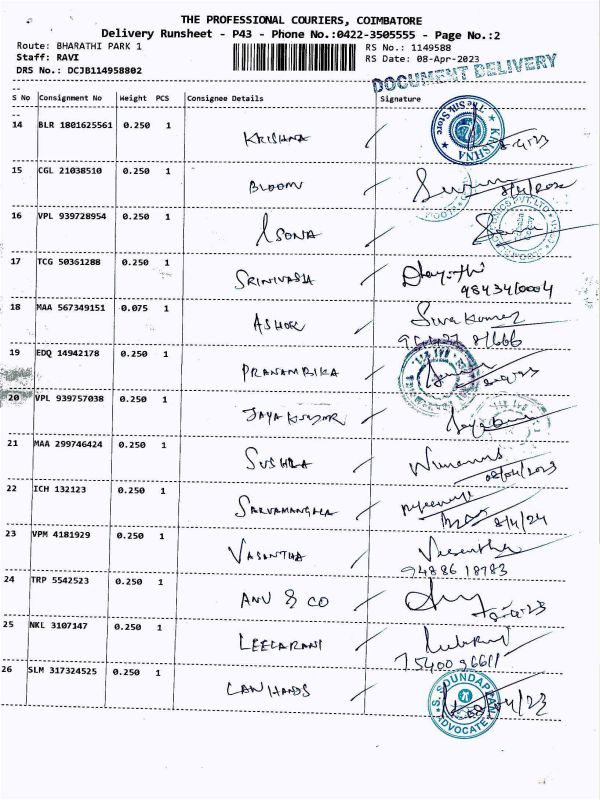 THE PROFESSIONAL COURIERS, COIMBATORE
Delivery Runsheet - P43 - Phone No.:0422-3505555 - Page No.:2
Route: BHARATHI PARK 1
RS No.: 1149588
Staff: RAVI
RS Date: 08-Apr-2023
DRS No.: DCJB114958802
DOCUMENT DELIVERY
S No Consignment No Weight PCS Consignee Details Signature
14 BLR 1801625561 0.250 1 KRISHNA
KRISHNA The Silk Store
15 CGL 21038510 0.250 1 BLOOM
16 VPL 939728954 0.250 1 SONA
17 TCG 50361288 0.250 1 SRINIVASA
18 MAA 567349151 0.075 1 ASHOK Siva Kumar
19 EDQ 14942178 0.250 1 PRANAMBIKA
20 VPL 939757038 0.250 1 JAYAKUMAR
21 MAA 299746424 0.250 1 SUSHILA
08/04/2023
22 ICH 132123 0.250 1 SARVAMANGALA
8/4/24
23 VPM 4181929 0.250 1 VASANTHA Vasantha
94886 18783
24 TRP 5542523 0.250 1 ANU & CO
25 NKL 3107147 0.250 1 LEELARANI
7540096611
26 SLM 317324525 0.250 1 LAW HANDS
ADVOCATE